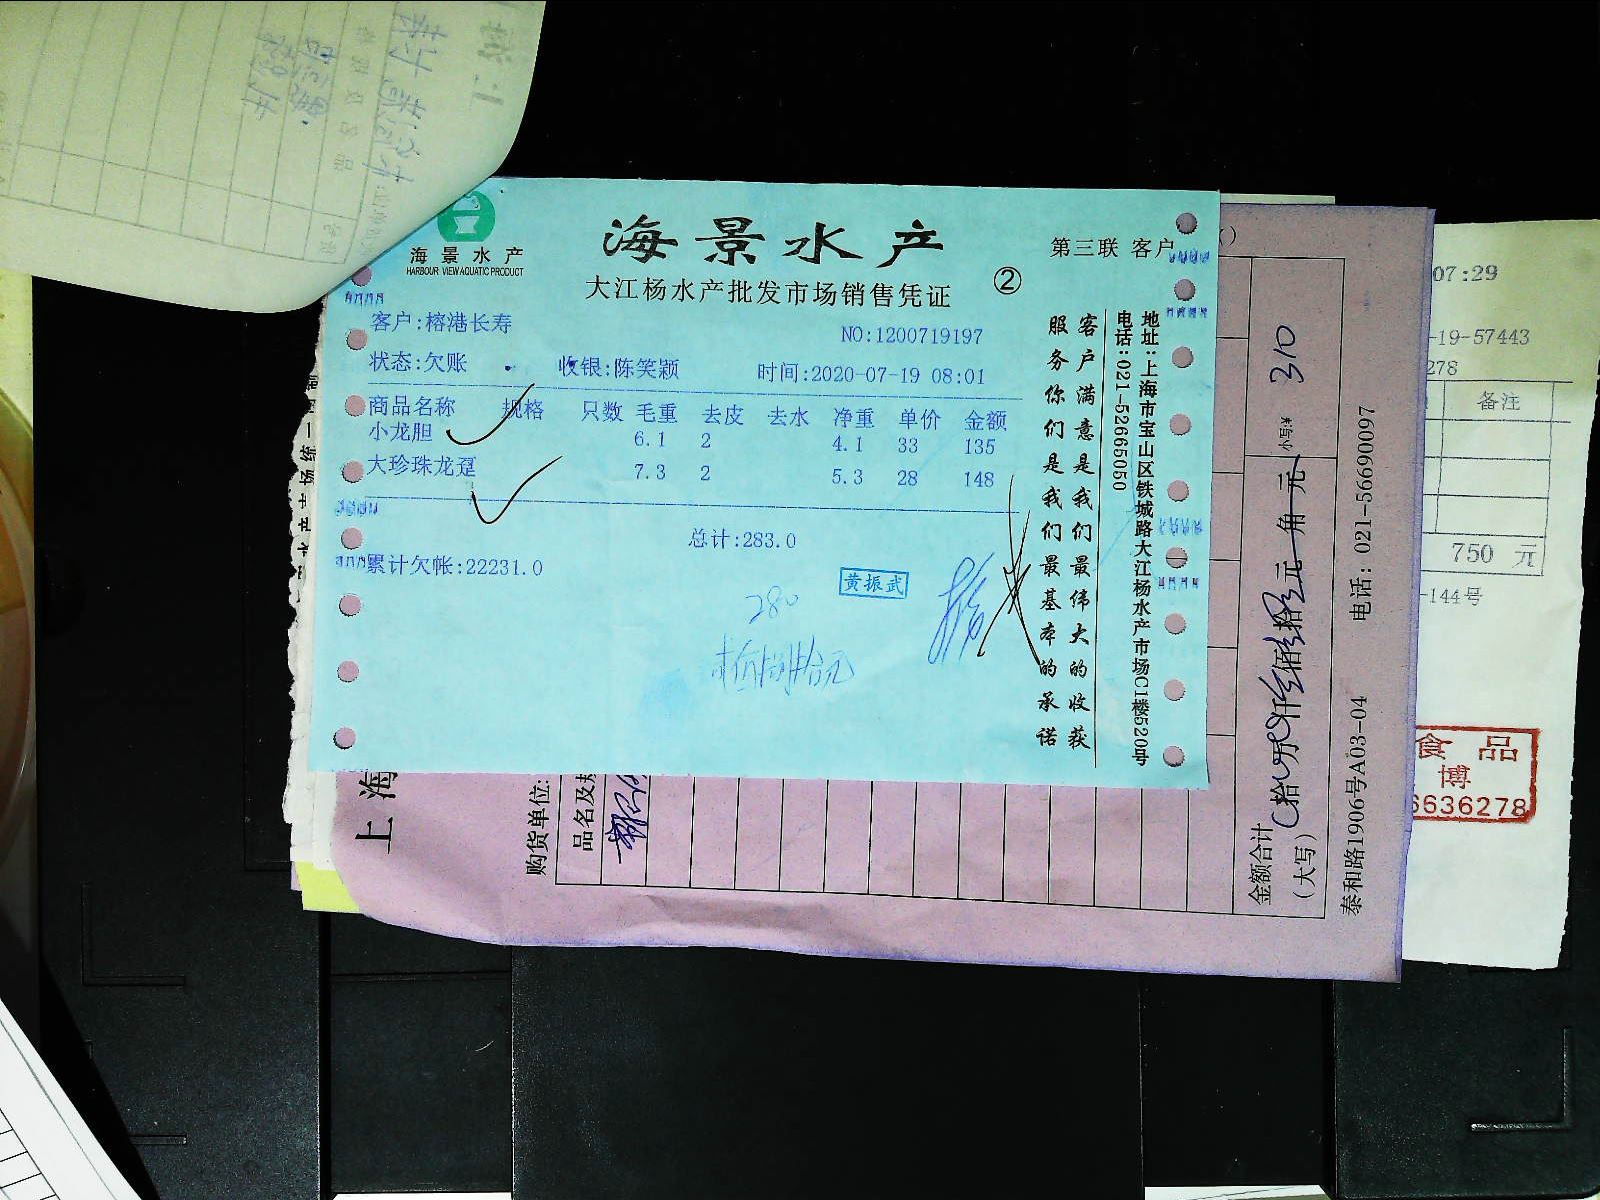 海景水产
HARBOUR VIEW AQUATIC PRODUCT
海景水产
大江杨水产批发市场销售凭证
②
第三联 客户
客户:榕港长寿
NO:1200719197
状态:欠账 收银:陈笑颖 时间:2020-07-19 08:01
商品名称 规格 只数 毛重 去皮 去水 净重 单价 金额
小龙胆 6.1 2 4.1 33 135
大珍珠龙趸 7.3 2 5.3 28 148
总计:283.0
累计欠帐:22231.0
黄振武
280
客户满意是我们最伟大的收获
服务你们是我们最基本的承诺
地址:上海市宝山区铁城路大江杨水产市场C1楼520号
电话:021-52665050
上海
购货单位:
品名及规
金额合计
(大写)
拾 万 仟 佰 拾 元 角
小写¥ 310
泰和路1906号A03-04 电话: 021-56690097
07:29
-19-57443
278
备注
750 元
-144号
食品
博
6636278